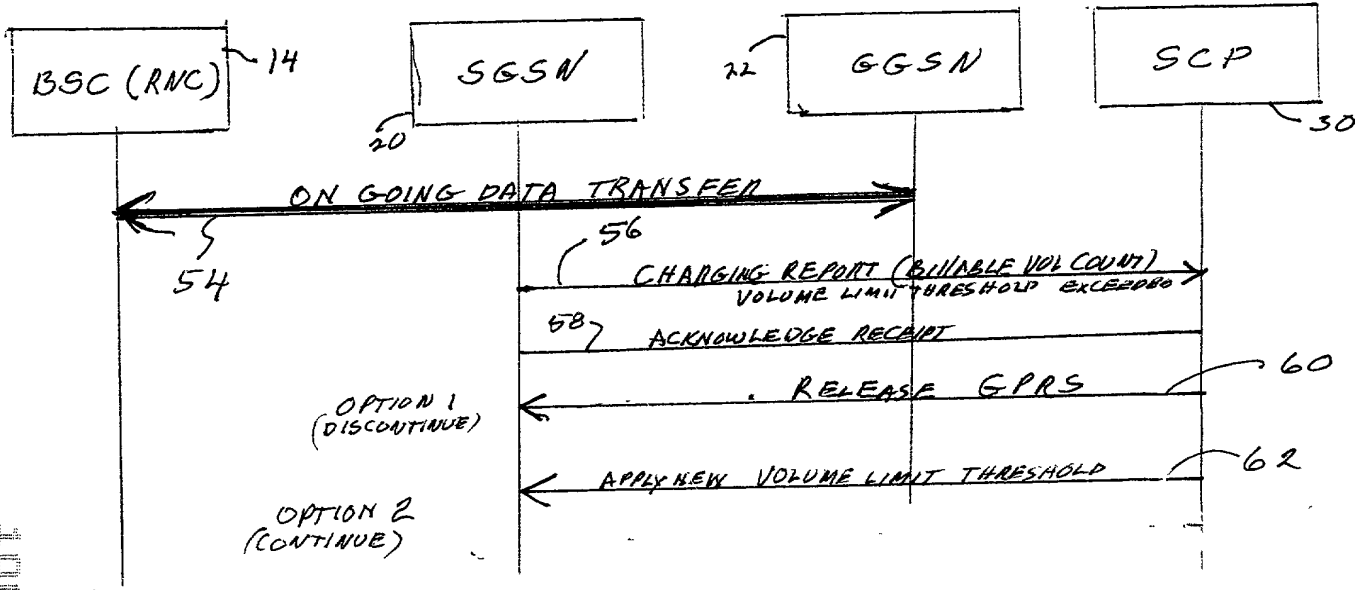 BSC (RNC)
14
SGSN
20
22
GGSN
SCP
30
ON GOING DATA TRANSFER
54
56
CHARGING REPORT (BILLABLE VOL COUNT)
VOLUME LIMIT THRESHOLD EXCEEDED
58
ACKNOWLEDGE RECEIPT
RELEASE GPRS
60
OPTION 1
(DISCONTINUE)
APPLY NEW VOLUME LIMIT THRESHOLD
62
OPTION 2
(CONTINUE)